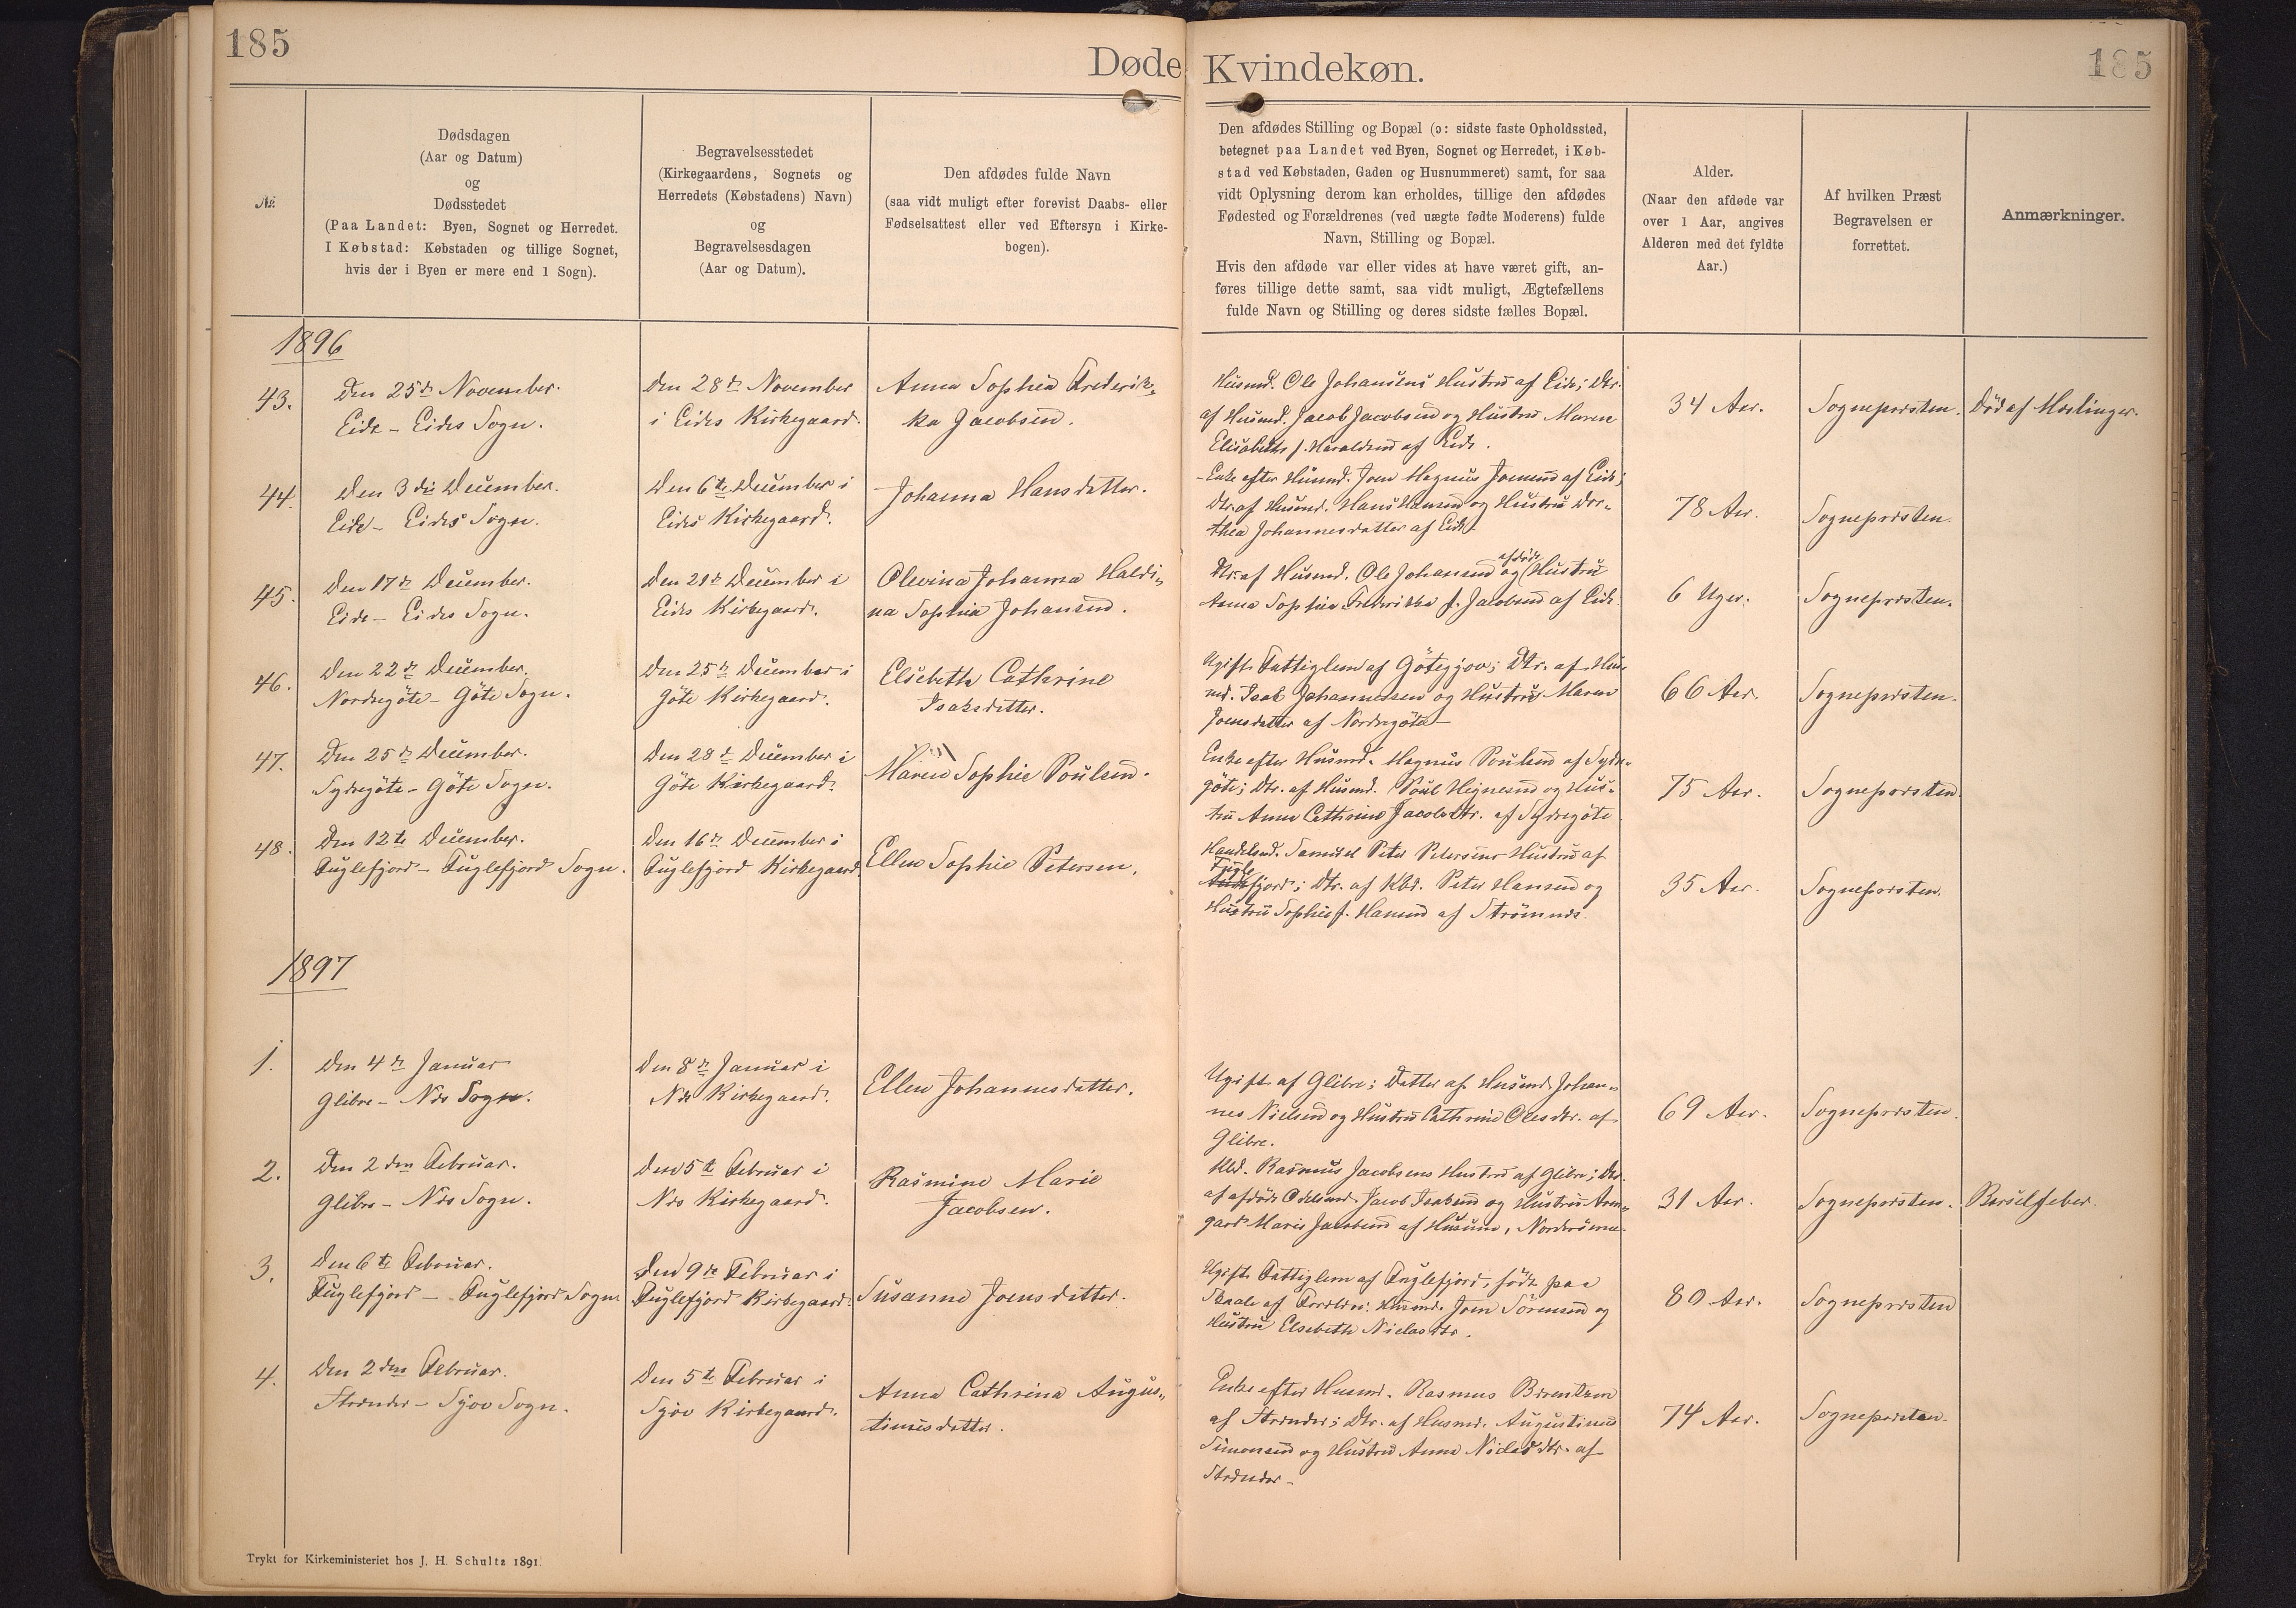 185
Døde Kvindekøn.
185
№.
Dødsdagen
(Aar og Datum)
og
Dødsstedet
(Paa Landet: Byen, Sognet og Herredet.
I Købstad: Købstaden og tillige Sognet,
hvis der i Byen er mere end 1 Sogn).
Begravelsesstedet
(Kirkegaardens, Sognets og
Herredets (Købstadens) Navn)
og
Begravelsesdagen
(Aar og Datum).
Den afdødes fulde Navn
(saa vidt muligt efter forevist Daabs- eller
Fødselsattest eller ved Eftersyn i Kirke-
bogen).
Den afdødes Stilling og Bopæl (ɔ: sidste faste Opholdssted,
betegnet paa Landet ved Byen, Sognet og Herredet, i Køb-
stad ved Købstaden, Gaden og Husnummeret) samt, for saa
vidt Oplysning derom kan erholdes, tillige den afdødes
Fødested og Forældrenes (ved uægte fødte Moderens) fulde
Navn, Stilling og Bopæl.
Hvis den afdøde var eller vides at have været gift, an-
føres tillige dette samt, saa vidt muligt, Ægtefællens
fulde Navn og Stilling og deres sidste fælles Bopæl.
Alder.
(Naar den afdøde var
over 1 Aar, angives
Alderen med det fyldte
Aar.)
Af hvilken Præst
Begravelsen er
forrettet.
Anmærkninger.
1896
43.
Den 25de November.
Eide - Eides Sogn.
Den 28de November
i Eides Kirkegaard.
Anna Sophia Frederik-
ka Jacobsen.
Husmd. Ole Johansens Hustru af Eide; Dtr.
af Husmd. Jacob Jacobsen og Hustru Maren
Elisabeth f. Haraldsen af Eide.
34 Aar.
Sognepræsten.
Død af Mæslinger.
44.
Den 3die December.
Eide - Eides Sogn.
Den 6te December i
Eides Kirkegaard.
Johanna Hansdatter.
Enke efter Husmd. Joen Magnus Joensen af Eide;
Dtr. af Husmd. Hans Hansen og Hustru Dor-
thea Johannesdatter af Eide.
78 Aar.
Sognepræsten.
45.
Den 17de December.
Eide - Eides Sogn.
Den 21de December i
Eides Kirkegaard.
Olevina Johanna Haldi-
na Sophia Johansen.
Dtr. af Husmd. Ole Johansen og afdøde Hustru
Anna Sophia Frederikka f. Jacobsen af Eide.
6 Uger.
Sognepræsten.
46.
Den 22de December.
Nordregöte - Göte Sogn.
Den 25de December i
Göte Kirkegaard.
Elsebeth Cathrine
Isaksdatter.
Ugift Fattiglem af Götegjov; Dtr. af Hus-
md. Isak Johannessen og Hustru Maren
Joensdatter af Nordregöte
66 Aar.
Sognepræsten.
47.
Den 25de December.
Sydregöte - Göte Sogn.
Den 28de December i
Göte Kirkegaard.
Maren Sophie Poulsen.
Enke efter Husmd. Magnus Poulsen af Sydre-
göte; Dtr. af Husmd. Poul Hejnesen og Hus-
tru Anna Cathrine Jacobsdtr. af Sydregöte
75 Aar.
Sognepræsten.
48.
Den 12te December.
Fuglefjord - Fuglefjord Sogn.
Den 16de December i
Fuglefjord Kirkegaard.
Ellen Sophie Petersen.
Handelsmd. Samuel Peter Petersens Hustru af
Fugle
fjord; Dtr. af Kbd. Peter Hansen og
Hustru Sophie f. Hansen af Strömnæs.
35 Aar.
Sognepræsten.
1897
1.
Den 4de Januar
Glibre - Næs Sogn.
Den 8de Januar i
Næs Kirkegaard.
Ellen Johannesdatter.
Ugift af Glibre; Datter af Husmd. Johan-
nes Nielsen og Hustru Cathrine Olesdtr. af
Glibre.
69 Aar.
Sognepræsten.
2.
Den 2den Februar.
Glibre - Næs Sogn.
Den 5te Februar i
Næs Kirkegaard.
Rasmine Marie
Jacobsen.
Kbd. Rasmus Jacobsens Hustru af Glibre; Dtr.
af afdøde Odelsmd. Jacob Isaksen og Hustru Arm-
gard Marie Jacobsen af Husum, Norderöerne.
31 Aar.
Sognepræsten.
Barselfeber.
3.
Den 6te Februar.
Fuglefjord - Fuglefjord Sogn
Den 9de Februar i
Fuglefjord Kirkegaard.
Susanne Joensdatter.
Ugift Fattiglem af Fuglefjord, født paa
Skaale af Forældre: Husmd. Joen Sörensen og
Hustru Elsebeth Niclasdtr.
80 Aar.
Sognepræsten
4.
Den 2den Februar.
Strænder - Sjov Sogn.
Den 5te Februar i
Sjov Kirkegaard.
Anna Cathrina Augus-
tinusdatter.
Enke efter Husmd. Rasmus Berentsen
af Strænder; Dtr. af Husmd. Augustinus
Simonsen og Hustru Anna Niclasdtr. af
Strænder.
74 Aar.
Sognepræsten.
Trykt for Kirkeministeriet hos J. H. Schultz 1891.